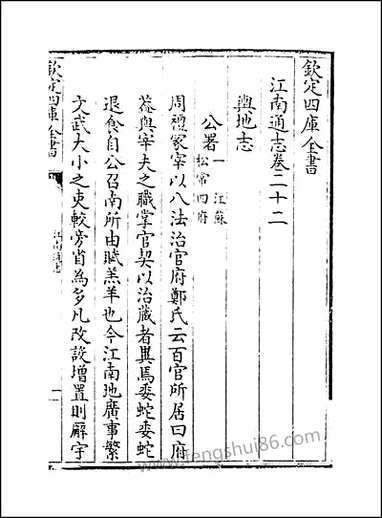 欽定四庫全書
江南通志卷二十二
輿地志
公署一 江蘇松常四府
周禮冢宰以八法治官府鄭氏云百官所居曰府
葢與宰夫之職掌官契以治藏者異焉委蛇委蛇
退食自公召南所由賦羔羊也今江南地廣事繁
文武大小之吏較旁省為多凡改設增置則廨宇
欽定四庫全書
江南通志
一
www.fengshui86.com